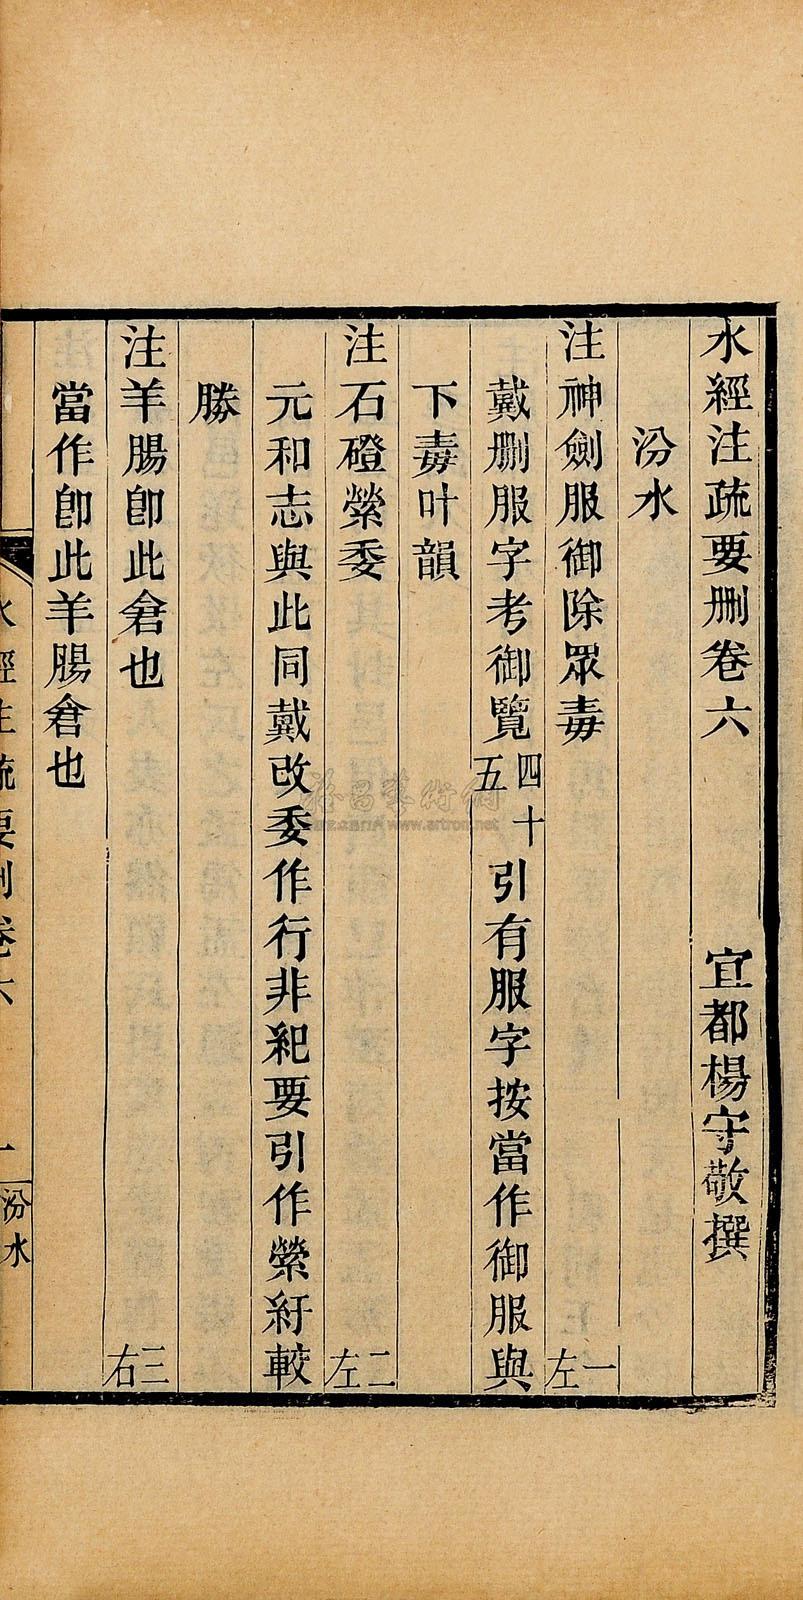 水經注疏要刪卷六
宜都楊守敬撰
汾水
注神劍服御除眾毒 一左
戴刪服字考御覽四十五引有服字按當作御服與
下毒叶韻
注石磴縈委 二左
元和志與此同戴改委作行非紀要引作縈紆較
勝
注羊腸卽此倉也 三右
當作卽此羊腸倉也
水經注疏要刪卷六
一 汾水
www.artron.net